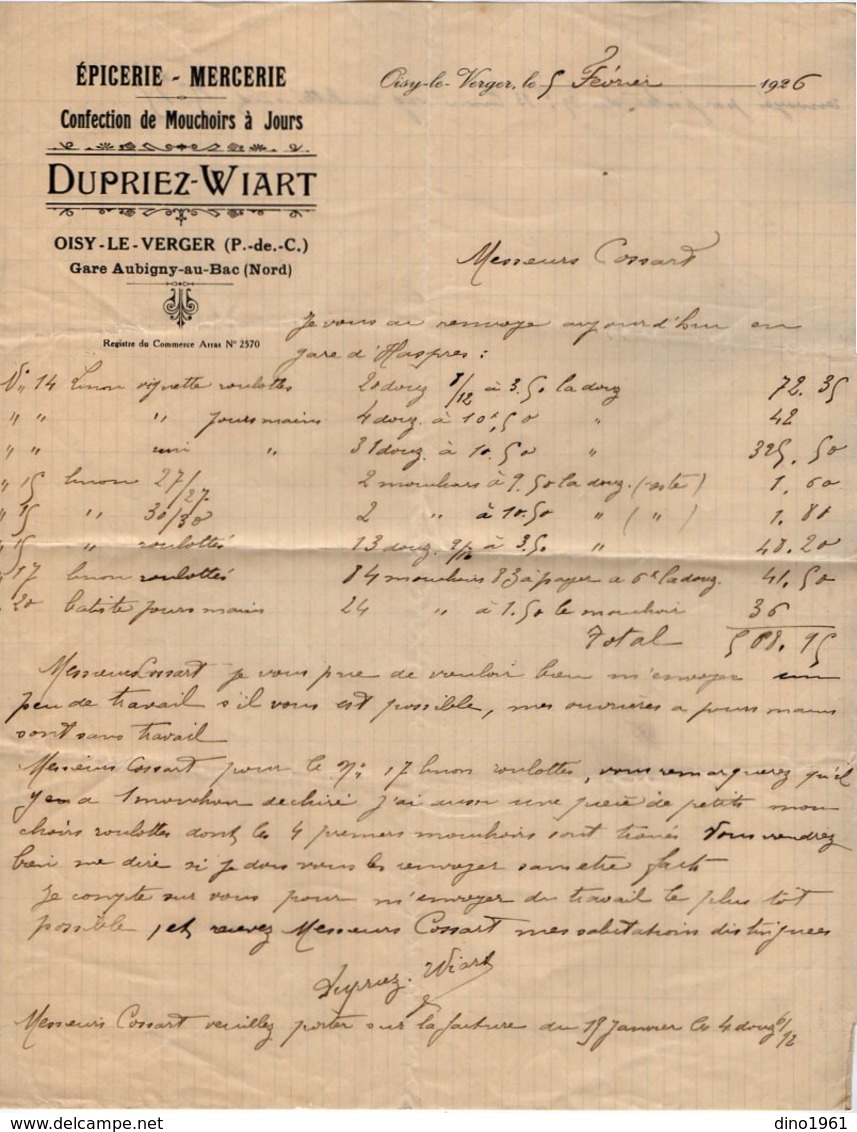 ÉPICERIE - MERCERIE
Confection de Mouchoirs à Jours
DUPRIEZ-WIART
OISY-LE-VERGER (P.-de-C.)
Gare Aubigny-au-Bac (Nord)
Registre du Commerce Arras N° 2570
Oisy-le-Verger, le 5 Février 1926
Messieurs Cossart
Je vous ai renvoyé aujourd'hui en
gare d'Haspres :
N° 14 Linon vignette roulottes 20 douz 8/12 à 3.50 la douz 72.35
" " " jours mains 4 douz. à 10f,50 " 42
" " uni " 31 douz. à 10.50 " 325.50
" 15 linon 27/27 2 mouchoirs à 9.50 la douz. (reste) 1.60
" 15 " 30/30 2 " à 10.50 " ( " ) 1.80
" 15 " roulottés 13 douz. 9/12 à 3.50 " 48.20
" 17 linon roulottés 84 mouchoirs 83 à payer a 6f la douz. 41.50
" 20 batiste jours mains 24 " à 1.50 le mouchoir 36
Total 568.95
Messieurs Cossart je vous prie de vouloir bien m'envoyer un
peu de travail s'il vous est possible, mes ouvrières a jours mains
sont sans travail
Messieurs Cossart pour le N° 17 linon roulottes, vous remarquerez qu'il
y en a 1 mouchoir dechiré j'ai aussi une pièce de petits mou
choirs roulottes dont les 4 premiers mouchoirs sont troués Vous voudrez
bien me dire si je dois vous les renvoyer sans etre faits
Je compte sur vous pour m'envoyer du travail le plus tôt
possible, et recevez Messieurs Cossart mes salutations distinguées
Dupriez-Wiart
Messieurs Cossart veuillez porter sur la facture du 15 Janvier les 4 douz 6/12
dino1961